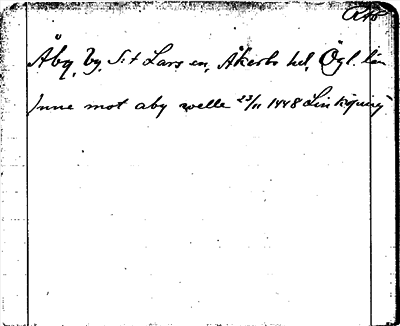 Åby, By, S:t Lars sn, Åkerbo hd, Ögl. län
Inne mot aby welle 23/11 1448 Linköping